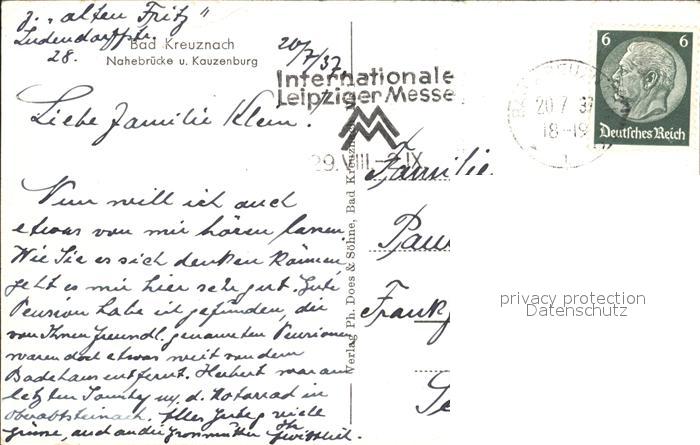 z. „alten Fritz“
Ludendorffstr.
28.
Bad Kreuznach
Nahebrücke u. Kauzenburg
20/7/37.
Internationale
Leipziger Messe
MM
29.VIII.-2.IX
20.7.37
18-19
6 6
Deutsches Reich
Liebe Familie Klein!
Nun will ich auch
etwas von mir hören lassen.
Wie Sie es sich denken können
geht es mir hier sehr gut. Gute
Pension habe ich gefunden, die
von Ihnen freundl. genannten Pensionen
waren doch etwas weit von dem
Badehaus entfernt. Herbert war am
letzten Sonntg m. d. Motorrad in
Oberabtsteinach. Alles Gute u. viele
Grüsse, auch an die Grossmutter Ihr
Verlag Ph. Does & Söhne, Bad Kreuznach
Familie
Pau
Frank
Se
privacy protection
Datenschutz